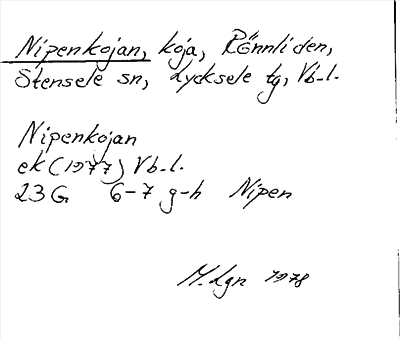 Nipenkojan, koja, Rönnliden,
Stensele sn, Lycksele tg, Vb-l.
Nipenkojan
ek (1977) Vb-l.
23 G 6-7 g-h Nipen
M. Lgn 1978